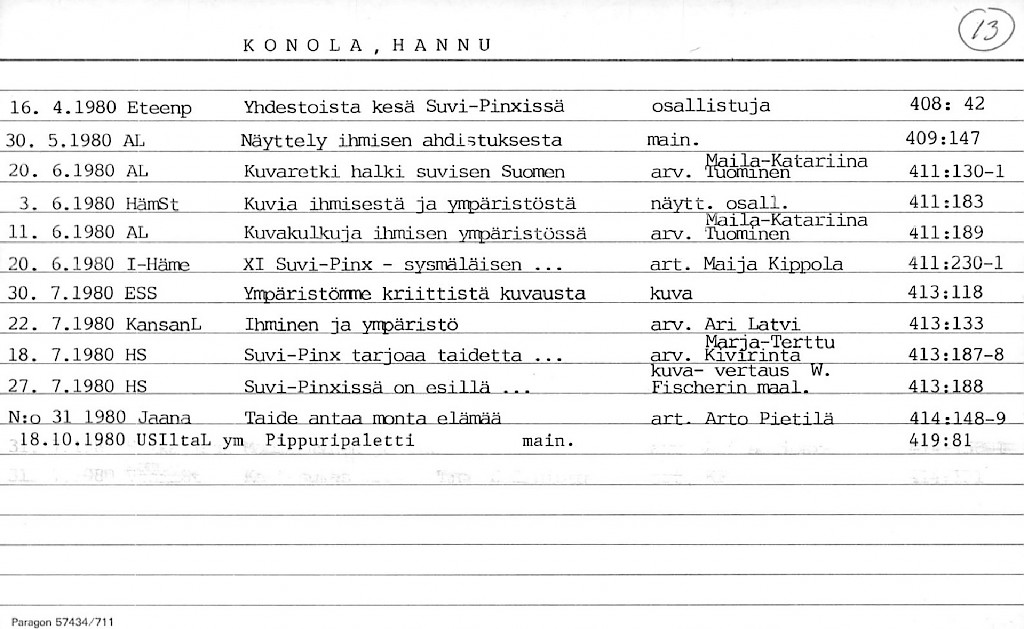 13
KONOLA, HANNU
16. 4.1980 Eteenp Yhdestoista kesä Suvi-Pinxissä osallistuja 408: 42
30. 5.1980 AL Näyttely ihmisen ahdistuksesta main. 409:147
20. 6.1980 AL Kuvaretki halki suvisen Suomen arv. Maila-Katariina Tuominen 411:130-1
3. 6.1980 HämSt Kuvia ihmisestä ja ympäristöstä näytt. osall. 411:183
11. 6.1980 AL Kuvakulkuja ihmisen ympäristössä arv. Maila-Katariina Tuominen 411:189
20. 6.1980 I-Häme XI Suvi-Pinx - sysmäläisen ... art. Maija Kippola 411:230-1
30. 7.1980 ESS Ympäristömme kriittistä kuvausta kuva 413:118
22. 7.1980 KansanL Ihminen ja ympäristö arv. Ari Latvi 413:133
18. 7.1980 HS Suvi-Pinx tarjoaa taidetta ... arv. Marja-Terttu Kivirinta 413:187-8
27. 7.1980 HS Suvi-Pinxissä on esillä ... kuva- vertaus W. Fischerin maal. 413:188
N:o 31 1980 Jaana Taide antaa monta elämää art. Arto Pietilä 414:148-9
18.10.1980 USIltaL ym Pippuripaletti main. 419:81
Paragon 57434/711